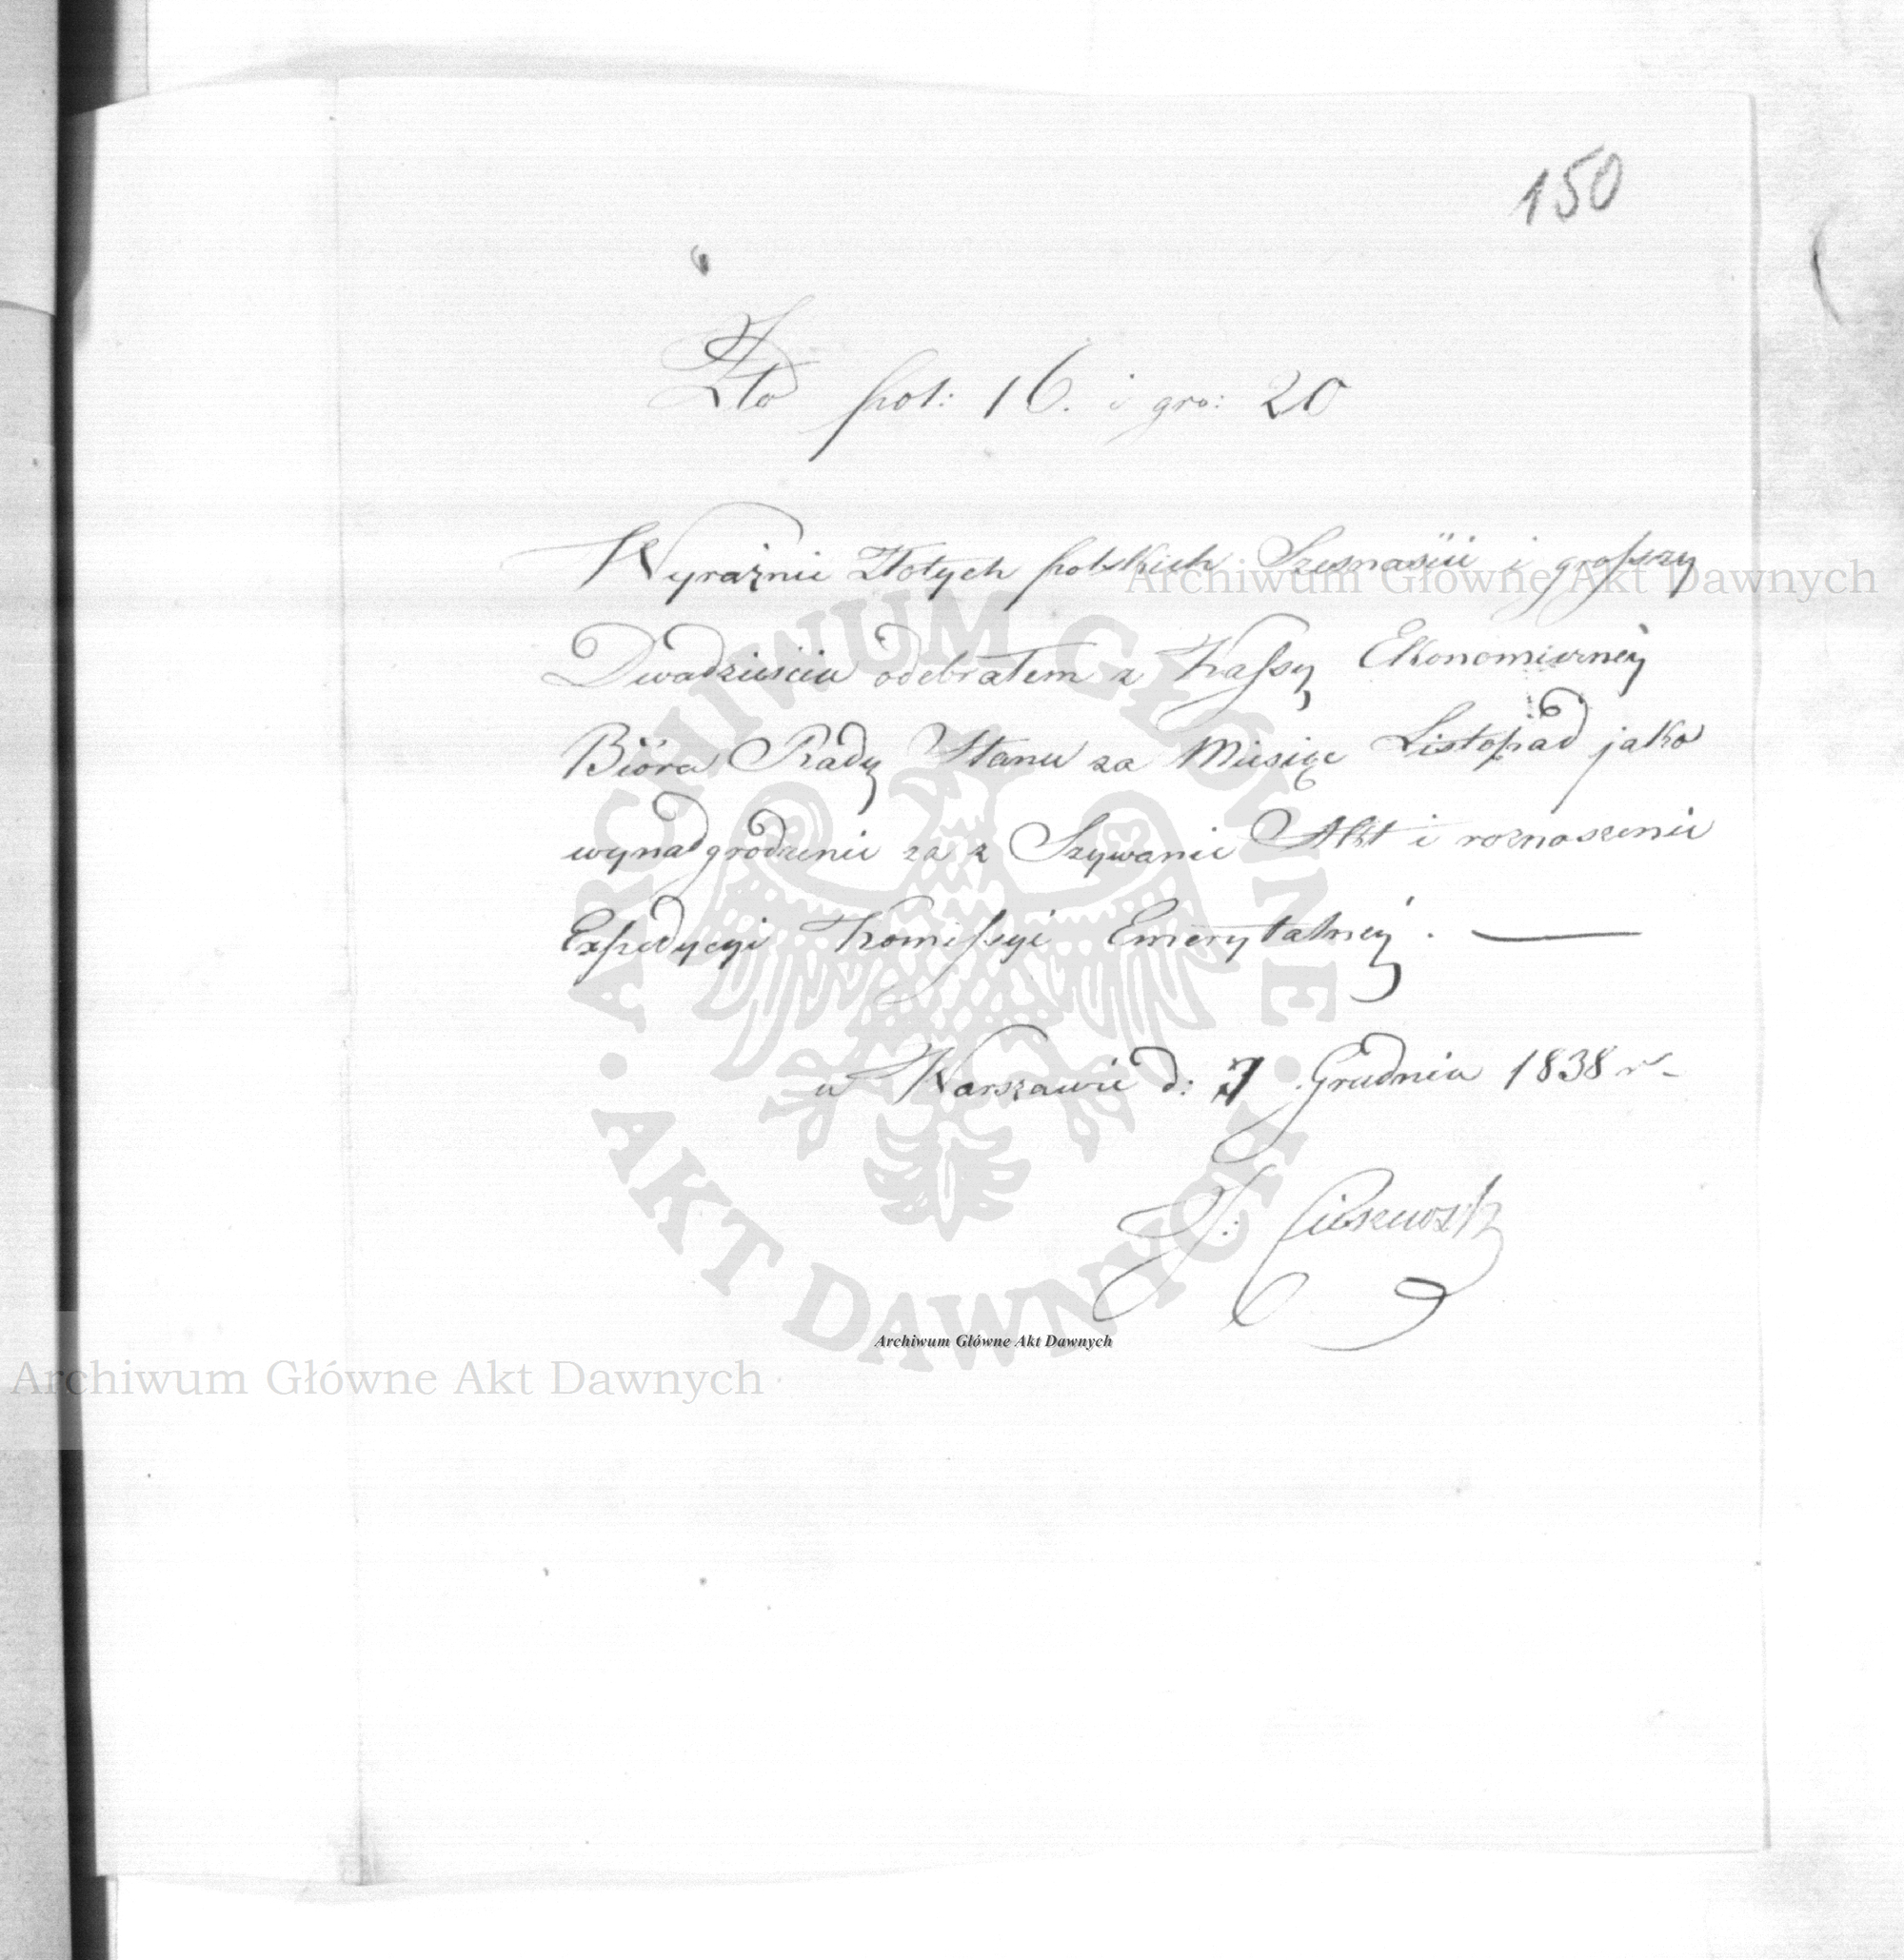 150
Zło pol: 16. i gro: 20
Wyraźnie Złotych polskich Szesnaście i groszy
Archiwum Główne Akt Dawnych
Dwadzieścia odebrałem z Kassy Ekonomiczney
Bióra Rady Stanu za Miesiąc Listopad jako
wynadgrodzenie za z Szywanie Akt i roznoszenie
Expedycyi Komissyi Emerytalney. —
w Warszawie d: 7 Grudnia 1838 r
ARCHIWUM GŁÓWNE • AKT DAWNYCH •
Archiwum Główne Akt Dawnych
Archiwum Główne Akt Dawnych